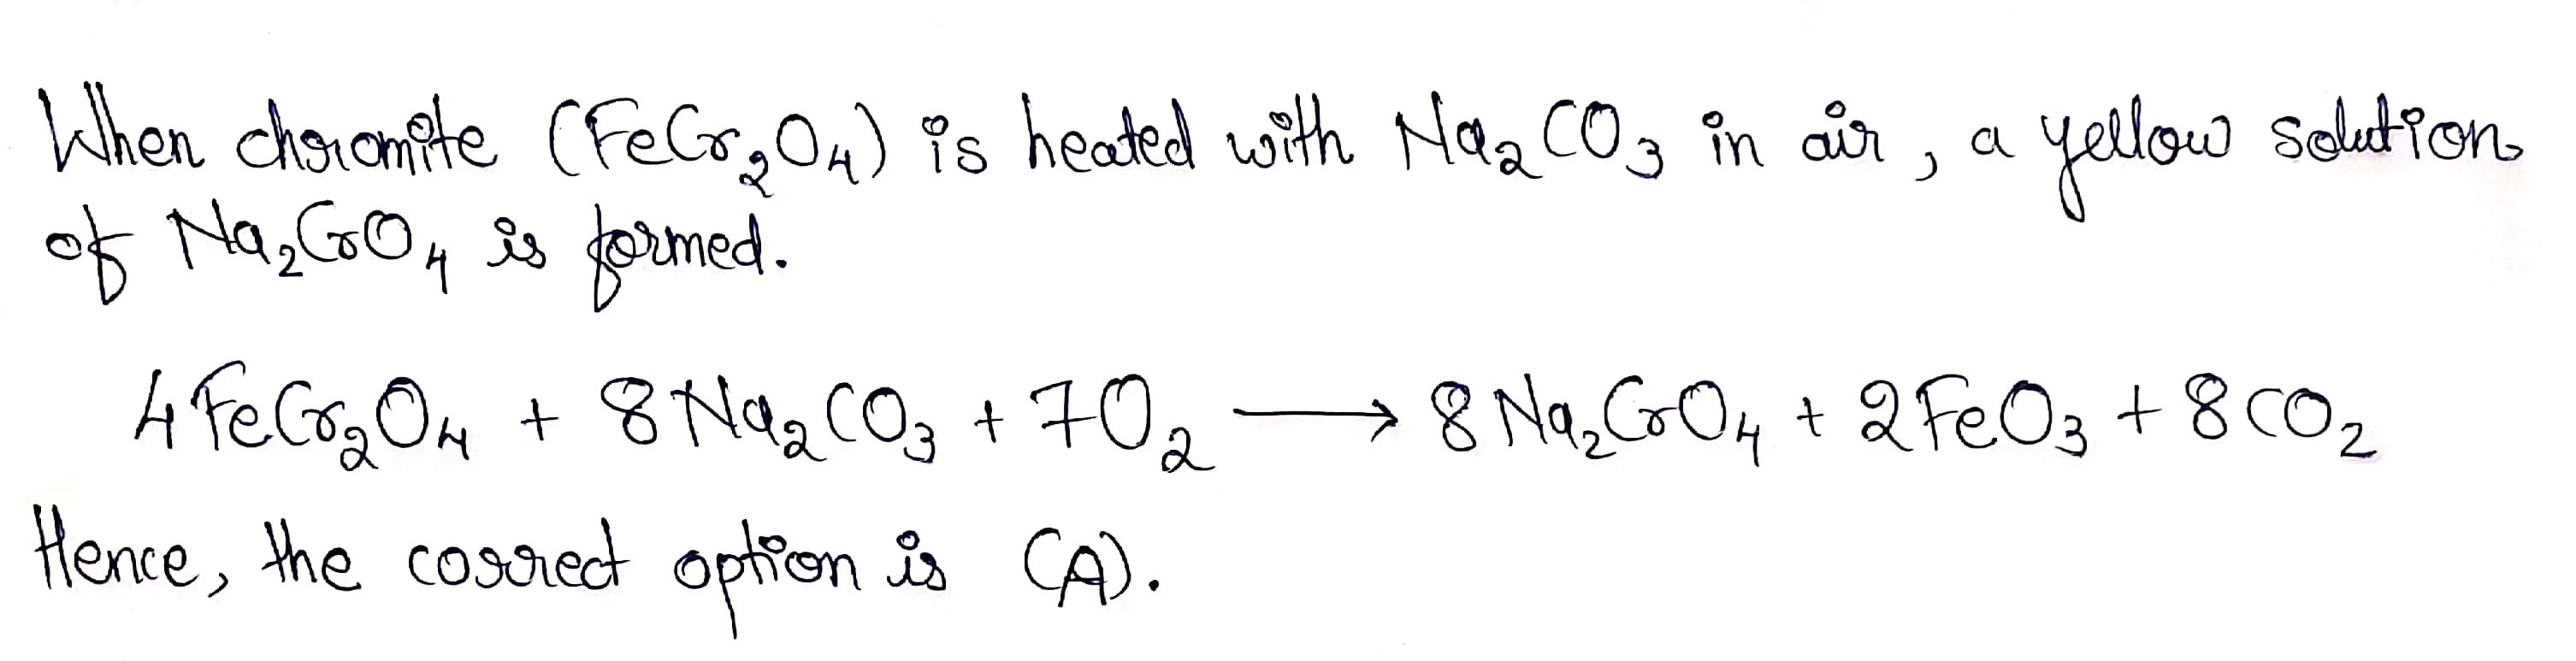 When chromite (FeCr₂O₄) is heated with Na₂CO₃ in air, a yellow solution
of Na₂CrO₄ is formed.
4FeCr₂O₄ + 8Na₂CO₃ + 7O₂ ⟶ 8Na₂CrO₄ + 2FeO₃ + 8CO₂
Hence, the correct option is (A).